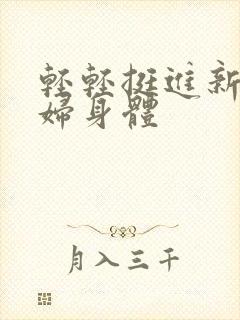 輕輕挺進新
婦身體
月入三千